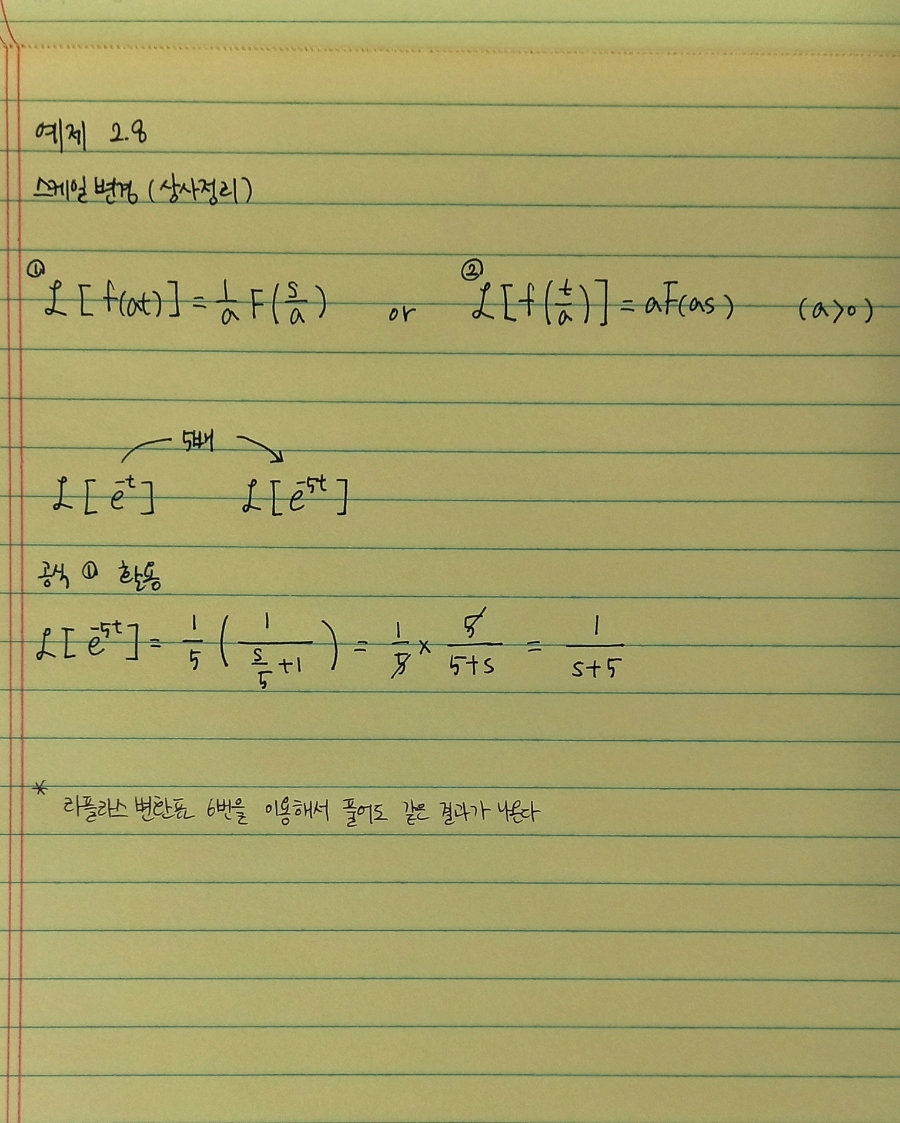 예제 2.8
스케일 변경 (상사정리)
① ℒ[f(at)] = 1/a F(s/a) or ② ℒ[f(t/a)] = aF(as) (a>0)
5배
ℒ[e^-t] ℒ[e^-5t]
공식 ① 활용
ℒ[e^-5t] = 1/5 (1/(s/5 +1)) = 1/5 × 5/(5+s) = 1/(s+5)
* 라플라스 변환표 6번을 이용해서 풀어도 같은 결과가 나온다